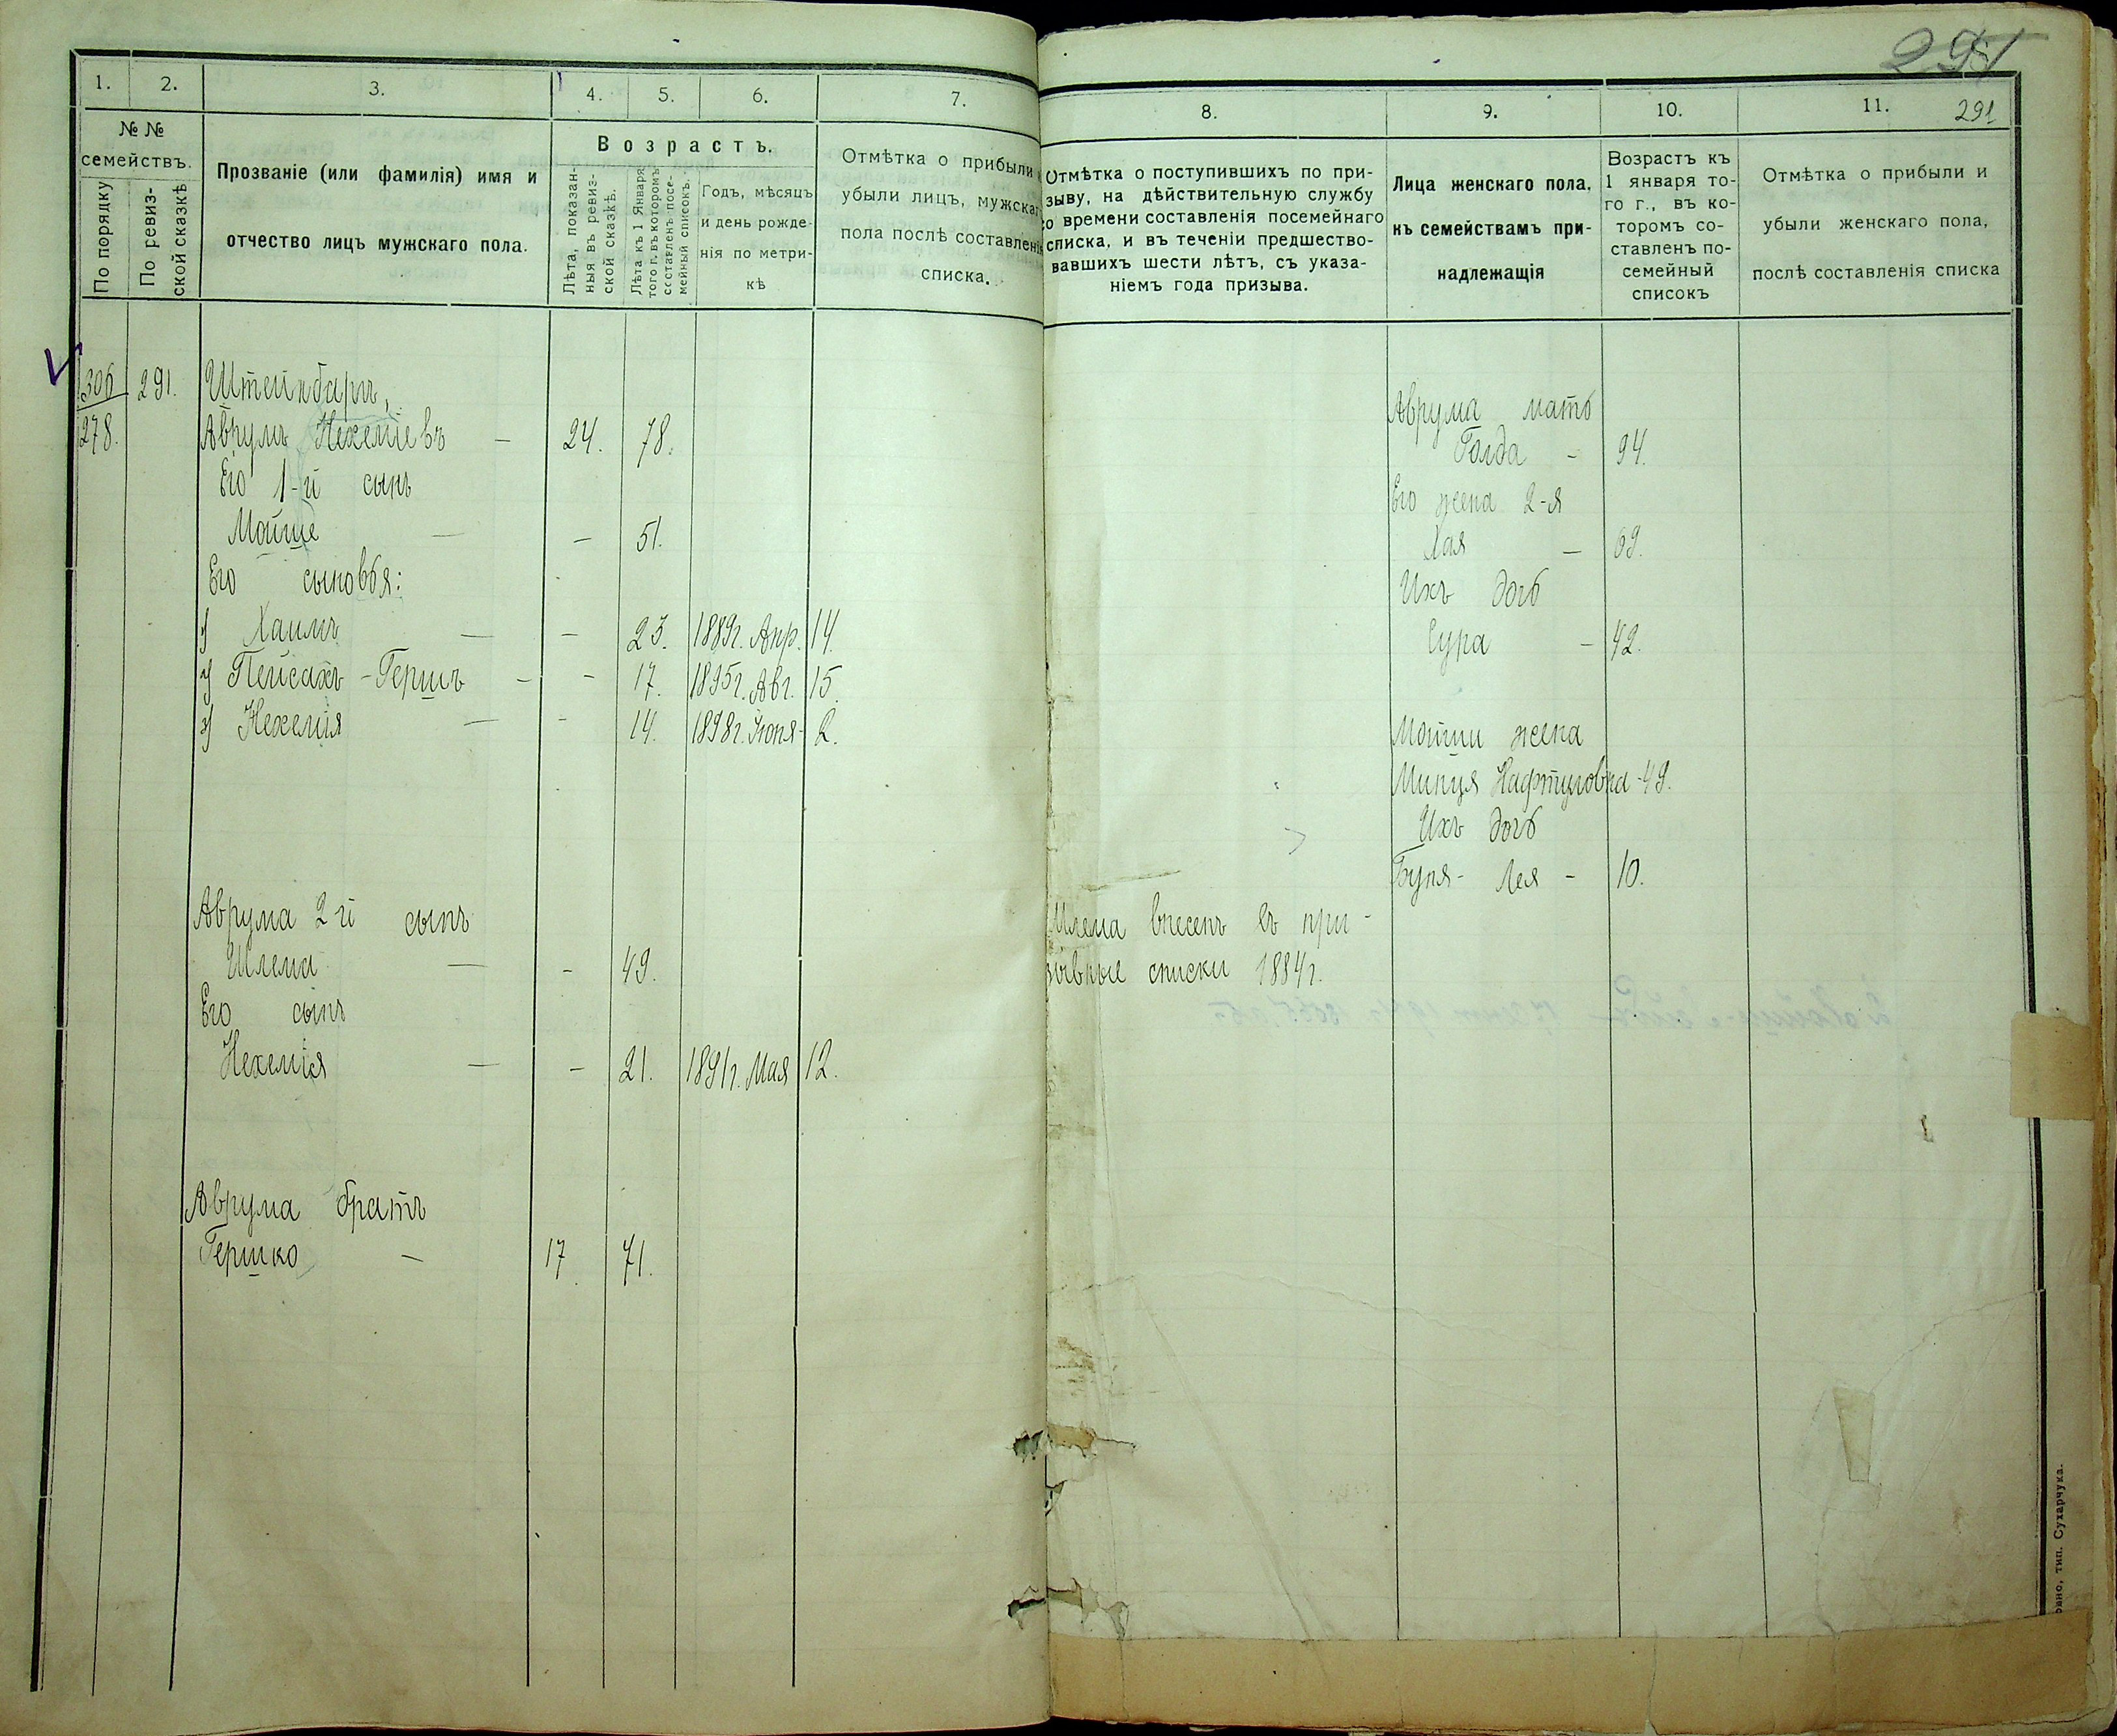 291
1.
2.
3.
4.
5.
6.
7.
№ №
семействъ.
По порядку
По ревиз-
ской сказкѣ
Прозваніе (или фамилія) имя и
отчество лицъ мужскаго пола.
Возрастъ.
Лѣта, показан-
ныя въ ревиз-
ской сказкѣ.
Лѣта къ 1 Января
того г. въ которомъ
составленъ посе-
мейный списокъ.
Годъ, мѣсяцъ
и день рожде-
нія по метри-
кѣ
Отмѣтка о прибыли
убыли лицъ, мужскаг
пола послѣ составлені
списка.
306 291. Штейнбаръ,
278. Аврумъ Нехеміевъ - 24. 78.
Его 1-й сынъ
Мойше — - 51.
Его сыновья:
1) Хаимъ — - 23. 1889г. Апр. 14.
2) Пейсахъ - Гершъ - - 17. 1895г. Авг. 15.
3) Нехемія — - 14. 1898г. Іюня 2.
Аврума 2-й сынъ
Шлема — - 49.
Его сынъ
Нехемія — - 21. 1891г. Мая 12.
Аврума братъ
Гершко — 17 71.
8.
9.
10.
11.
291
Отмѣтка о поступившихъ по при-
зыву, на дѣйствительную службу
со времени составленія посемейнаго
списка, и въ теченіи предшество-
вавшихъ шести лѣтъ, съ указа-
ніемъ года призыва.
Лица женскаго пола,
къ семействамъ при-
надлежащія
Возрастъ къ
1 января то-
го г., въ ко-
торомъ со-
ставленъ по-
семейный
списокъ
Отмѣтка о прибыли и
убыли женскаго пола,
послѣ составленія списка
Аврума мать
Голда - 94.
Его жена 2-я
Хая — 69.
Ихъ дочь
Сура - 42.
Мойши жена
Минця Нафтуловна - 49.
Ихъ дочь
Буня - Лея - 10.
Шлема внесенъ въ при-
зывные списки 1884г.
овно, тип. Сухарчука.